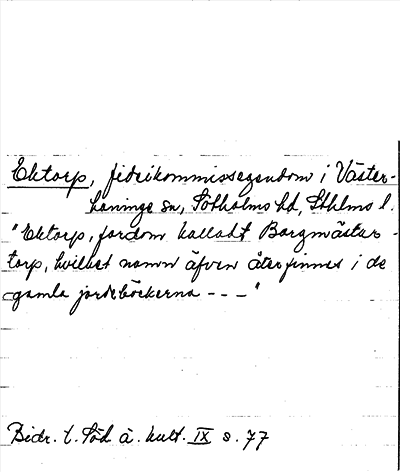 Ektorp, fideikommissegendom i Väster-
haninge sn, Sotholms hd, Sthlms l.
"Ektorp, fordom kalladt Borgmästar-
torp, hvilket namn äfven återfinnes i de
gamla jordeböckerna - - - "
Bidr. t. Söd ä. kult. IX s. 77